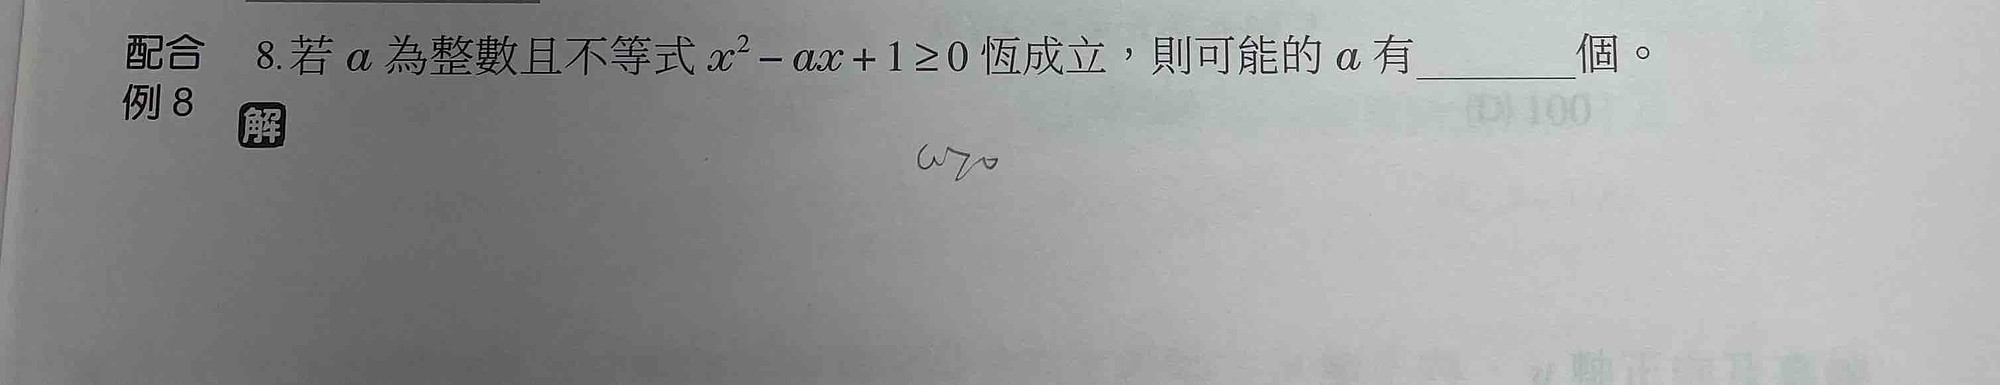 配合 8. 若 a 為整數且不等式 x² − ax + 1 ≥ 0 恆成立，則可能的 a 有________個。
例 8
解
(D) 100